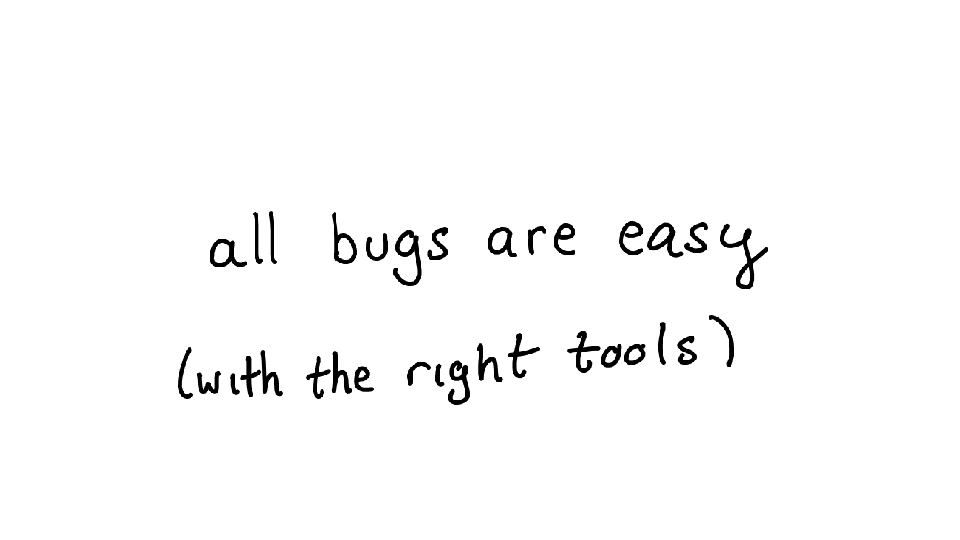 all bugs are easy
(with the right tools)